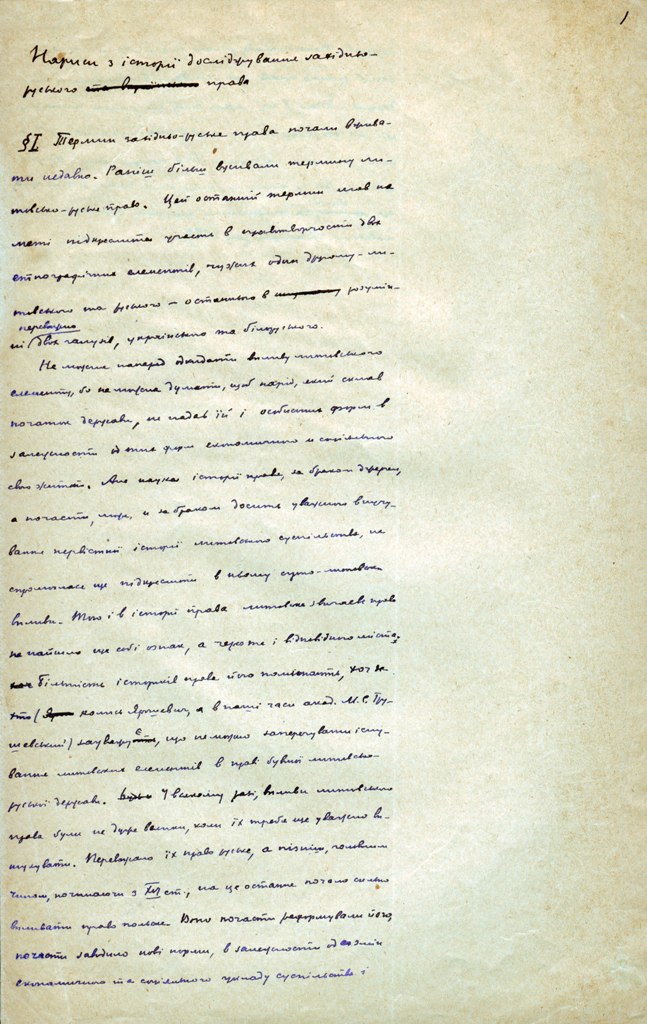 1
Нариси з історії досліджування західньо-
руського та права
§ I Термин західньо-руське права почали вжива-
ти недавно. Раніш більш вживали термину ли-
товсько-руське право. Цей останній термин мав на
меті підкреслити участь в правотворчості двох
етнографічних елементів, чужих один другому – ли-
товського та руського – останнього в розумін-
переважно
ні двох галузів, українського та білоруського.
Не можна наперед одкидати впливу литовського
елементу, бо не можна думати, щоб нарід, який склав
початок держави, не надав їй і особистих форм в
залежности од тих форм економичного и соціяльного
свого життя. Але наука історії права, за браком джерел,
а почасти, може, и за браком досить уважного вивчу-
вання первістної історії литовського суспільства, не
спромоглася ще підкреслити в ньому суто-литовські
впливи. Тому і в історії права литовське звичаєве право
не найшло ще собі ознак, а через те і відповідного міста.
Більшість істориків права його помовчають, хоч де
хто (колись Ярошевич, а в наші часи акад. М. С. Гру-
шевський) зауважує, що не можно заперечувати існу-
вання литовських елементів в праві бувшої литовсько-
руської держави. У всякому разі, впливи литовського
права були не дуже великі, коли їх треба ще уважно ви-
шукувати. Переважало їх право руське, а пізніш, головним
чином, починаючи з XVI ст., на це останнє почало сильно
впливати право польське. Воно почасти реформувало його,
почасти заводило нові норми, в залежности од змін
економичного та соціяльного укладу суспільства і